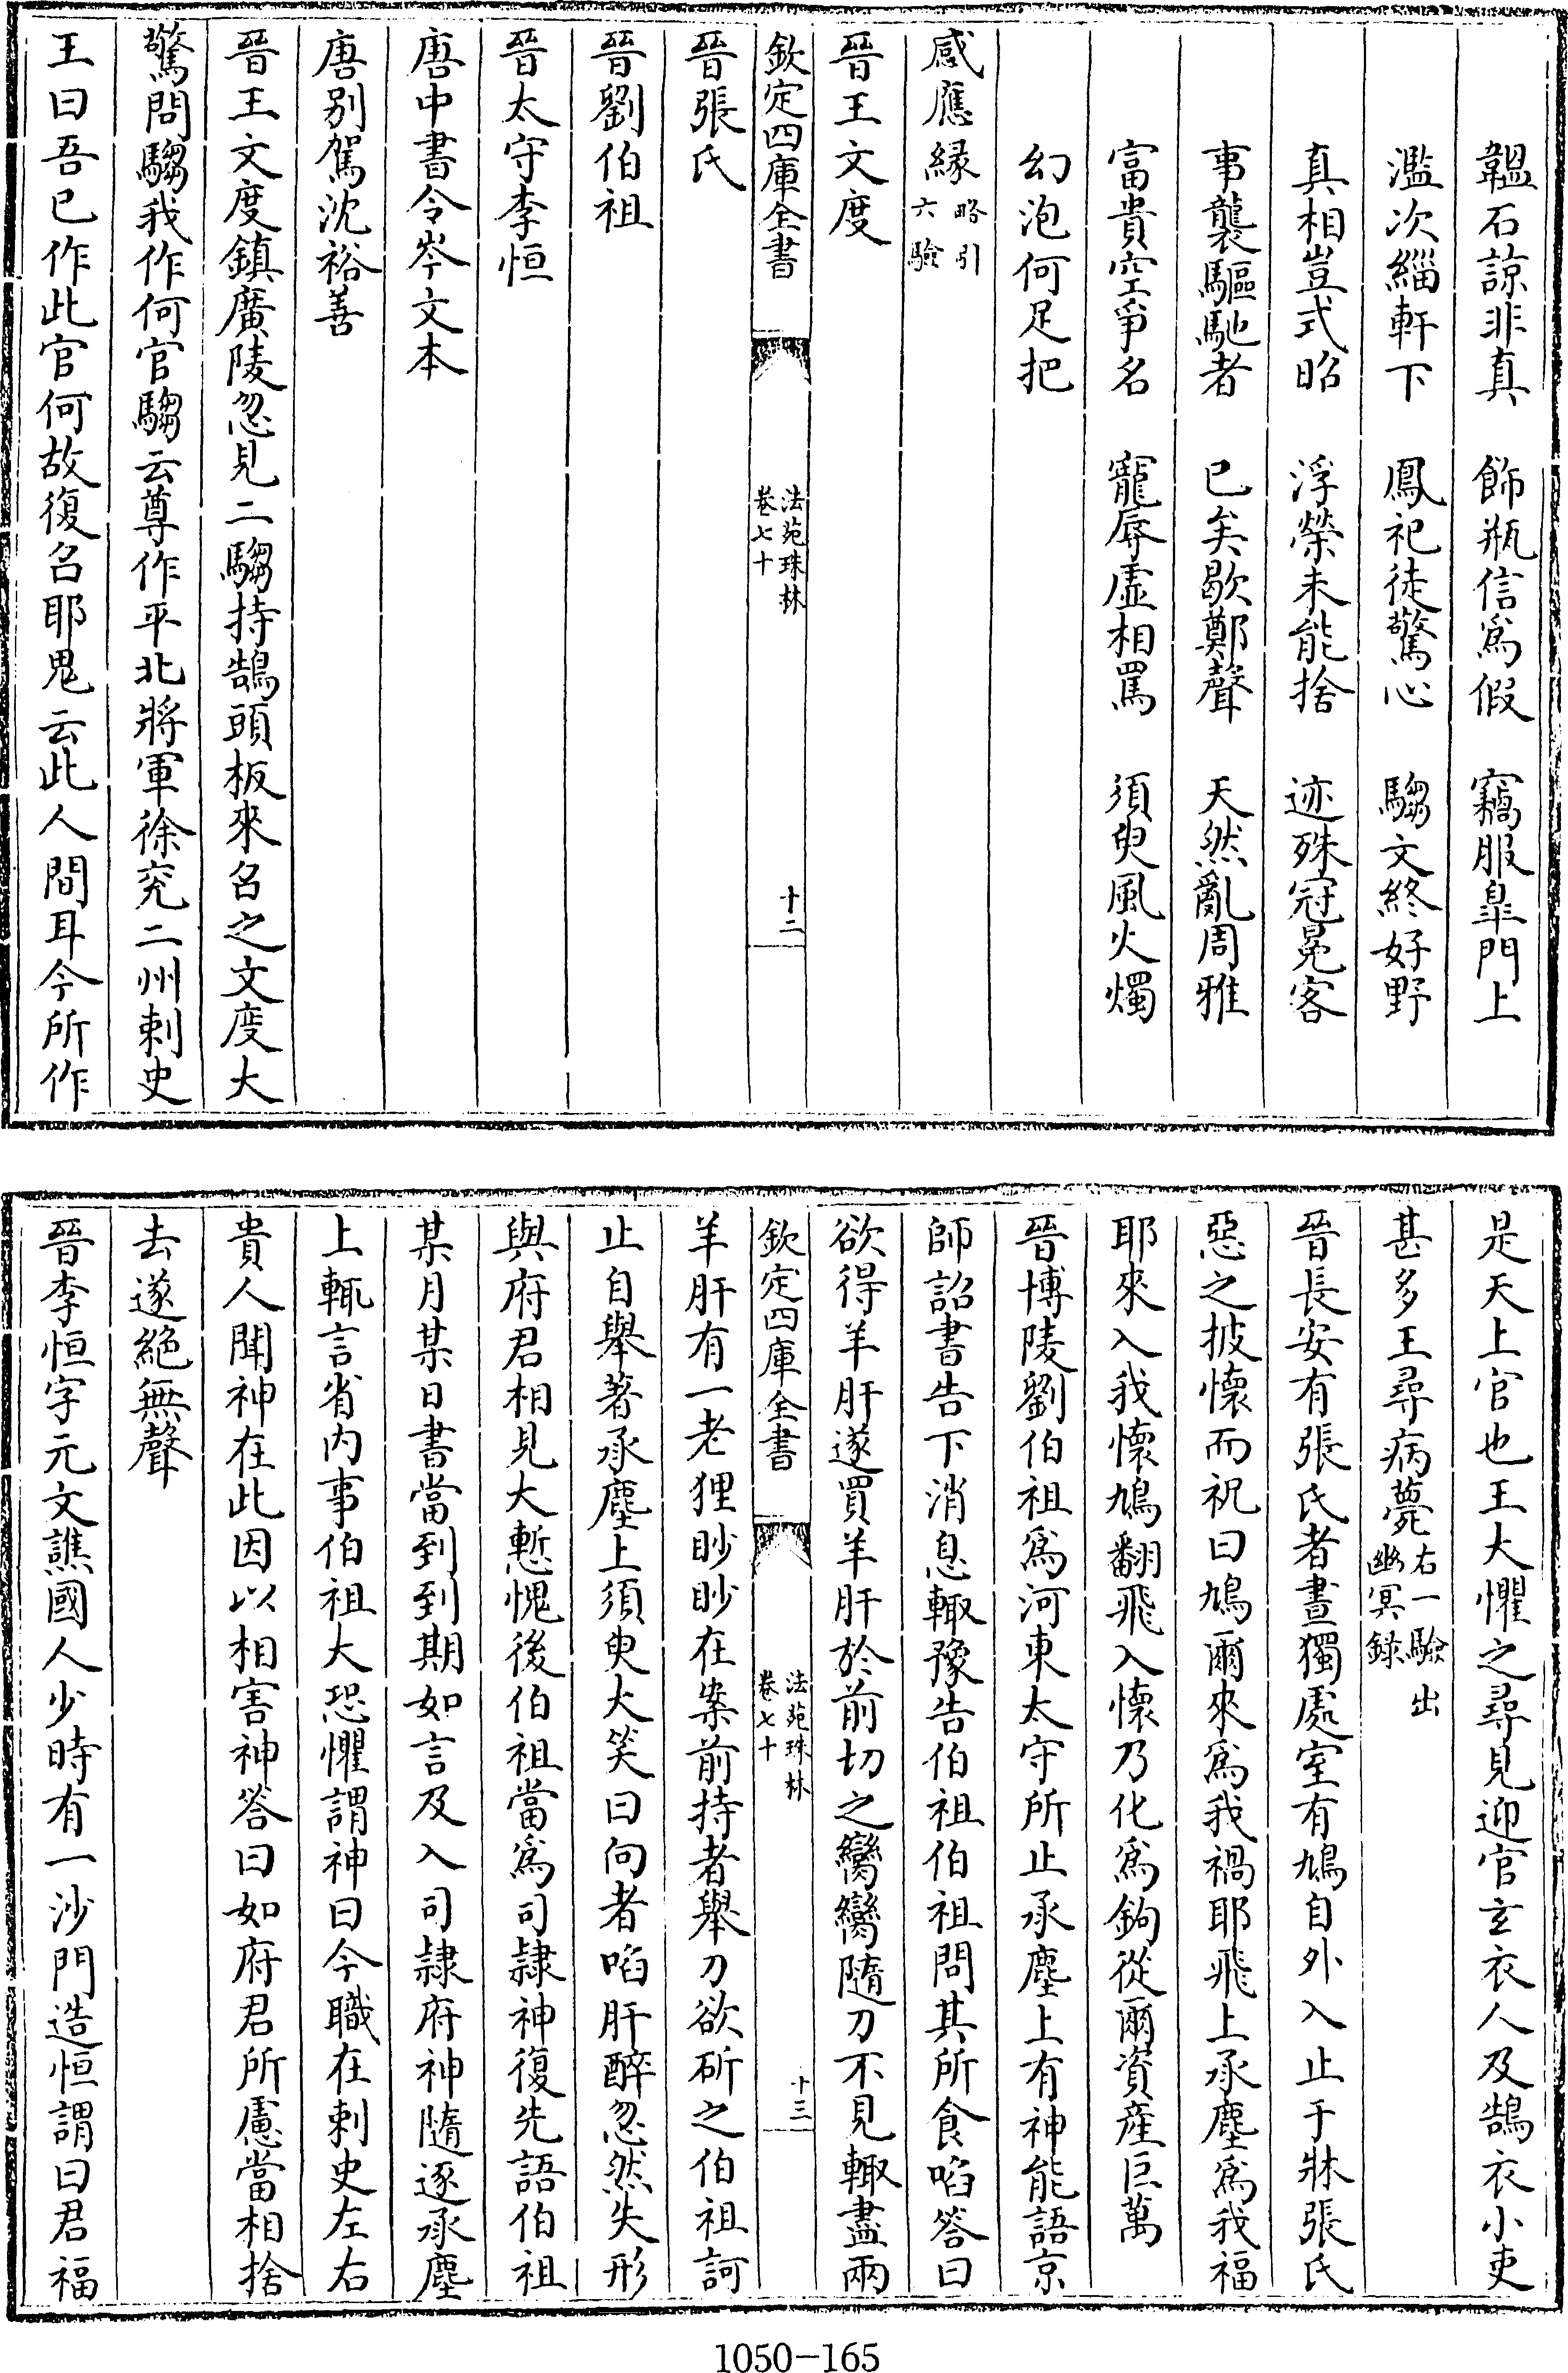 韞石諒非真　飾瓶信爲假　竊服臯門上
濫次緇軒下　鳳祀徒驚心　騶文終好野
真相豈式昭　浮榮未能捨　迹殊冠冕客
事襲驅馳者　已矣歇鄭聲　天然亂周雅
富貴空爭名　寵辱虚相罵　須臾風火燭
幻泡何足把
感應縁略引六驗
晉王文度
欽定四庫全書　法苑珠林卷七十　十二
晉張氏
晉劉伯祖
晉太守李恒
唐中書令岑文本
唐别駕沈裕善
晉王文度鎮廣陵忽見二騶持鵠頭板來名之文度大
驚問騶我作何官騶云尊作平北將軍徐兖二州刺史
王曰吾已作此官何故復召耶鬼云此人間耳今所作
是天上官也王大懼之尋見迎官玄衣人及鵠衣小吏
甚多王尋病薨右一驗出幽冥録
晉長安有張氏者晝獨處室有鳩自外入止于牀張氏
惡之披懐而祝曰鳩爾來爲我禍耶飛上承塵爲我福
耶來入我懐鳩翻飛入懐乃化爲鉤從爾資産巨萬
晉博陵劉伯祖爲河東太守所止承塵上有神能語京
師詔書告下消息輙豫告伯祖伯祖問其所食啗答曰
欲得羊肝遂買羊肝於前切之臠臠隨刀不見輙盡兩
欽定四庫全書　法苑珠林卷七十　十三
羊肝有一老狸眇眇在案前持者舉刀欲斫之伯祖訶
止自舉著承塵上須臾大笑曰向者啗肝醉忽然失形
與府君相見大慙愧後伯祖當爲司隷神復先語伯祖
某月某日書當到到期如言及入司隷府神隨逐承塵
上輒言省内事伯祖大恐懼謂神曰今職在刺史左右
貴人聞神在此因以相害神答曰如府君所慮當相捨
去遂絶無聲
晉李恒字元文譙國人少時有一沙門造恒謂曰君福
1050-165